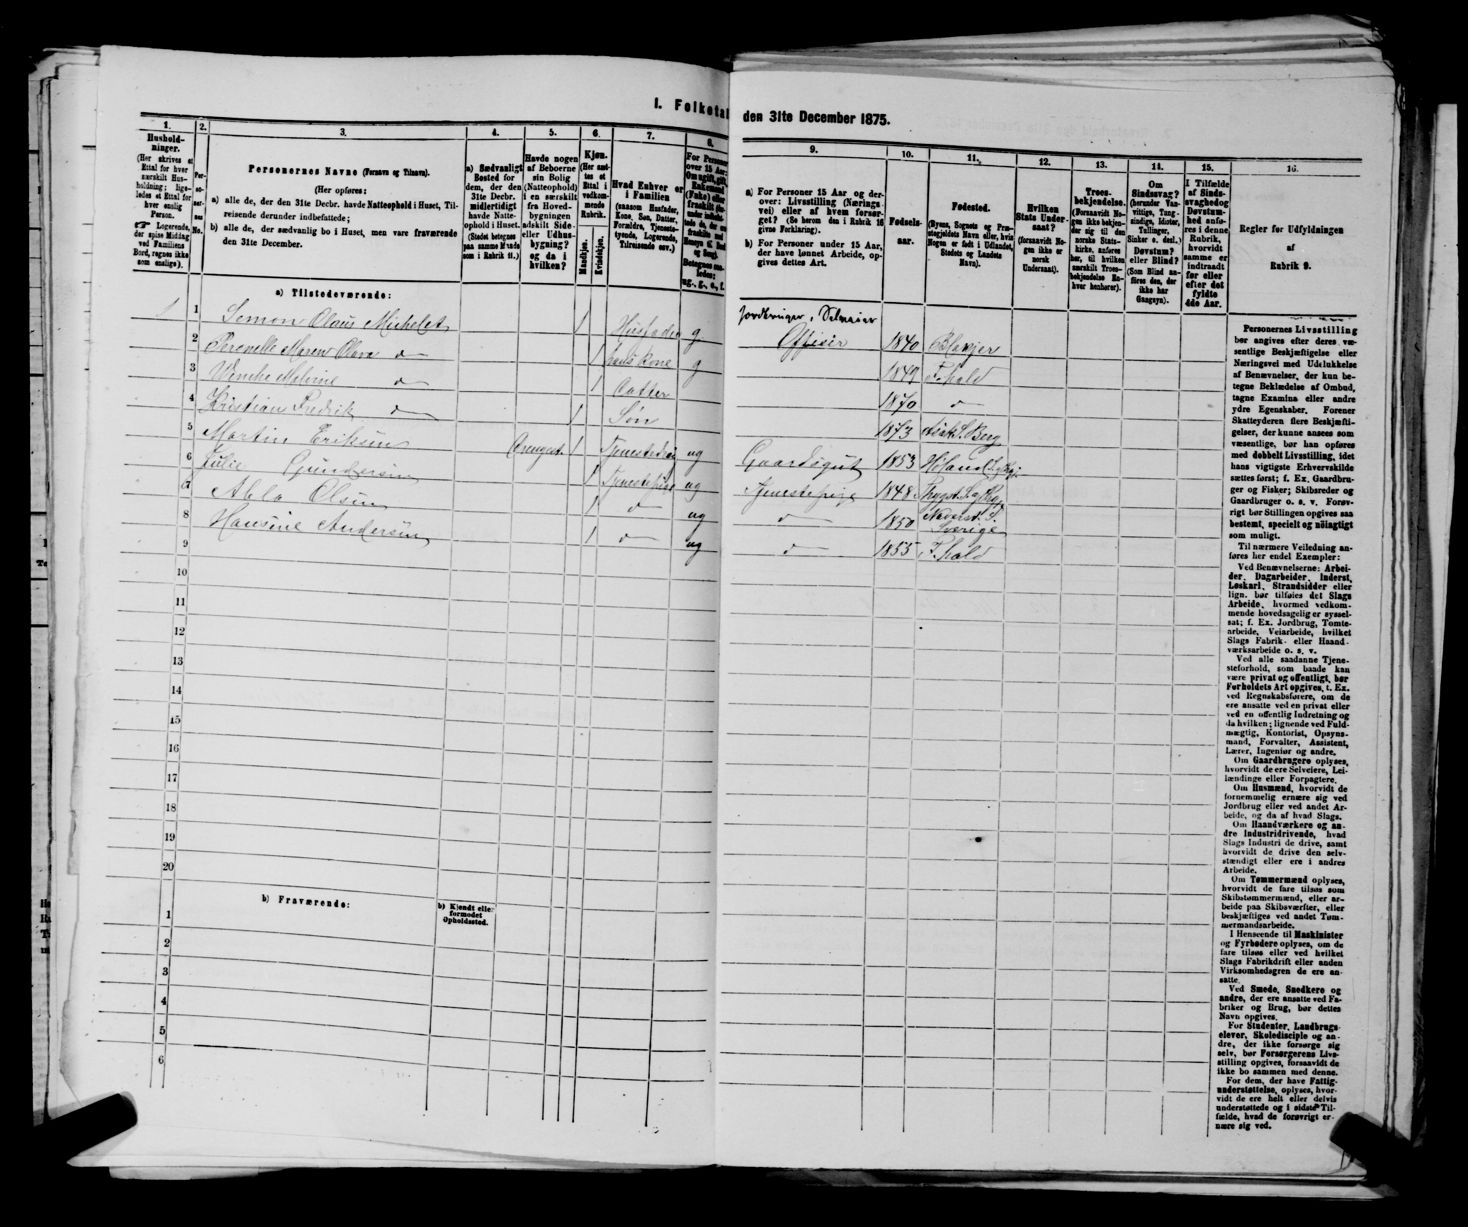 I. Folketal den 31te December 1875.
1.
Hushold-
ninger.
(Her skrives et
Ettal for hver
særskilt Hus-
holdning; lige-
ledes et Ettal for
hver enslig
Person.
Logerende,
der spise Middag
ved Familiens
Bord, regnes ikke
som enslige).
2.
Per-
so-
ner-
nes
No.
3.
Personernes Navne (Fornavn og Tilnavn).
(Her opføres:
a) alle de, der den 31te Decbr. havde Natteophold i Huset, Til-
reisende derunder indbefattede;
b) alle de, der sædvanlig bo i Huset, men vare fraværende
den 31te December.
4.
a) Sædvanligt
Bosted for
dem, der den
31te Decbr.
midlertidigt
havde Natte-
ophold i Huset.
(Stedet betegnes
paa samme Maade
som i Rubrik 11.)
5.
Havde nogen
af Beboerne
sin Bolig
(Natteophold)
i en særskilt
fra Hoved-
bygningen
adskilt Side-
eller Udhus-
bygning?
og da i
hvilken?
6.
Kjøn.
(Her sæt-
tes et
Ettal i
vedkom-
mende
Rubrik.
Mandkjøn.
Kvindekjøn.
7.
Hvad Enhver er
i Familien
(saasom Husfader,
Kone, Søn, Datter,
Forældre, Tjeneste-
tyende, Logerende,
Tilreisende osv.)
8.
For Personer
over 15 Aar:
Om ugift, gift,
Enkemand
(Enke) eller
fraskilt
ug., g., e., f.
9.
a) For Personer 15 Aar og der-
over: Livsstilling (Nærings-
vei) eller af hvem forsør-
get? (Se herom den i Rubrik 16
givne Forklaring).
b) For Personer under 15 Aar,
der have lønnet Arbeide, op-
gives dettes Art.
10.
Fødsels-
aar.
11.
Fødested.
(Byens, Sognets og Præ-
stegjeldets Navn eller, hvis
Nogen er født i Udlandet,
Stedets og Landets
Navn).
12.
Hvilken
Stats Under-
saat?
(forsaavidt No-
gen ikke er
norsk
Undersaat).
13.
Troes-
bekjendelse.
(Forsaavidt No-
gen ikke bekjen-
der sig til den
norske Stats-
kirke, anføres
her, til hvilken
særskilt Troes-
bekjendelse En-
hver henhører).
14.
Om
Sindssvag?
(herunder Van-
vittige, Tung-
sindige, Idioter,
Sinker o. desl.)
Døvstum?
eller Blind?
(Som Blind an-
føres den, der
ikke har
Gangsyn).
15.
I Tilfælde
af Sinds-
svaghed og
Døvstum-
hed anfø-
res i denne
Rubrik,
hvorvidt
samme er
indtraadt
før eller
efter det
fyldte
4de Aar.
16.
Regler for Udfyldningen
af
Rubrik 9.
a) Tilstedeværende:
1 1 Semon Olaus Michelet 1 Husfader g Jordbruger, Selveier
Offisir 1840 Blakjer
2 Pernelle Maren Olava do 1 hans Kone g 1849 F.hald
3 Wenche Malvine do 1 Datter 1870 do
4 Kristian Fredrik do 1 Søn 1873 Asak S. Berg
5 Martin Eriksen 1 ug Gaardsgut 1853
6 Julie Gundersen 1 Tjenestepige ug Tjenestepige 1848
7 Abla Olsen 1 do ug do 1850 Sverige
8 Hansine Andersen 1 do ug do 1855 F.hald
9
10
11
12
13
14
15
16
17
18
19
20
b) Fraværende:
b) Kjendt eller
formodet
Opholdssted.
1
2
3
4
5
6
Personernes Livsstilling
bør angives efter deres væ-
sentlige Beskjæftigelse eller
Næringsvei med Udelukkelse
af Benævnelser, der kun be-
tegne Beklædelse af Ombud,
tagne Examina eller andre
ydre Egenskaber. Forener
Skatteyderen flere Beskjæfti-
gelser, der kunne ansees som
væsentlige, bør han opføres
med dobbelt Livsstilling, idet
hans vigtigste Erhvervskilde
sættes først; f. Ex. Gaardbru-
ger og Fisker; Skibsreder og
Gaardbruger o. s. v. Forøv-
rigt bør Stillingen opgives saa
bestemt, specielt og nöiagtigt
som muligt.
Til nærmere Veiledning an-
føres her endel Exempler:
Ved Benævnelserne: Arbei-
der, Dagarbeider, Inderst,
Løskarl, Strandsidder eller
lign. bør tilføies det Slags
Arbeide, hvormed vedkom-
mende hovedsagelig er syssel-
sat; f. Ex. Jordbrug, Tomte-
arbeide, Veiarbeide, hvilket
Slags Fabrik- eller Haand-
værksarbeide o. s. v.
Ved alle saadanne Tjene-
steforhold, som baade kan
være privat og offentligt, bør
Forholdets Art opgives, t. Ex.
ved Regnskabsførere, om de
ere ansatte ved en privat eller
ved en offentlig Indretning og
da hvilken; lignende ved Fuld-
mægtig, Kontorist, Opsyns-
mand, Forvalter, Assistent,
Lærer, Ingeniør og andre.
Om Gaardbrugere oplyses,
hvorvidt de ere Selveiere, Lei-
lændinge eller Forpagtere.
Om Husmænd, hvorvidt de
fornemmelig ernære sig ved
Jordbrug eller ved andet Ar-
beide, og da af hvad Slags.
Om Haandværkere og an-
dre Industridrivende, hvad
Slags Industri de drive, samt
hvorvidt de drive den selv-
stændigt eller ere i andres
Arbeide.
Om Tømmermænd oplyses,
hvorvidt de fare tilsøs som
Skibstømmermænd, eller ar-
beide paa Skibsværfter, eller
beskjæftiges ved andet Tøm-
mermandsarbeide.
I Henseende til Maskinister
og Fyrbødere oplyses, om de
fare tilsøs eller ved hvilket
Slags Fabrikdrift eller anden
Virksomhedsgren de ere an-
satte.
Ved Smede, Snedkere og
andre, der ere ansatte ved Fa-
briker og Brug, bør dettes
Navn opgives.
For Studenter, Landbrugs-
elever, Skoledisciple og an-
dre, der ikke forsørge sig
selv, bør Forsørgerens Livs-
stilling opgives, forsaavidt de
ikke bo sammen med denne.
For dem, der have Fattig-
understøttelse, oplyses, hvor-
vidt de ere helt eller delvis
understøttede og i sidste Til-
fælde, hvad de forøvrigt er-
nære sig ved.